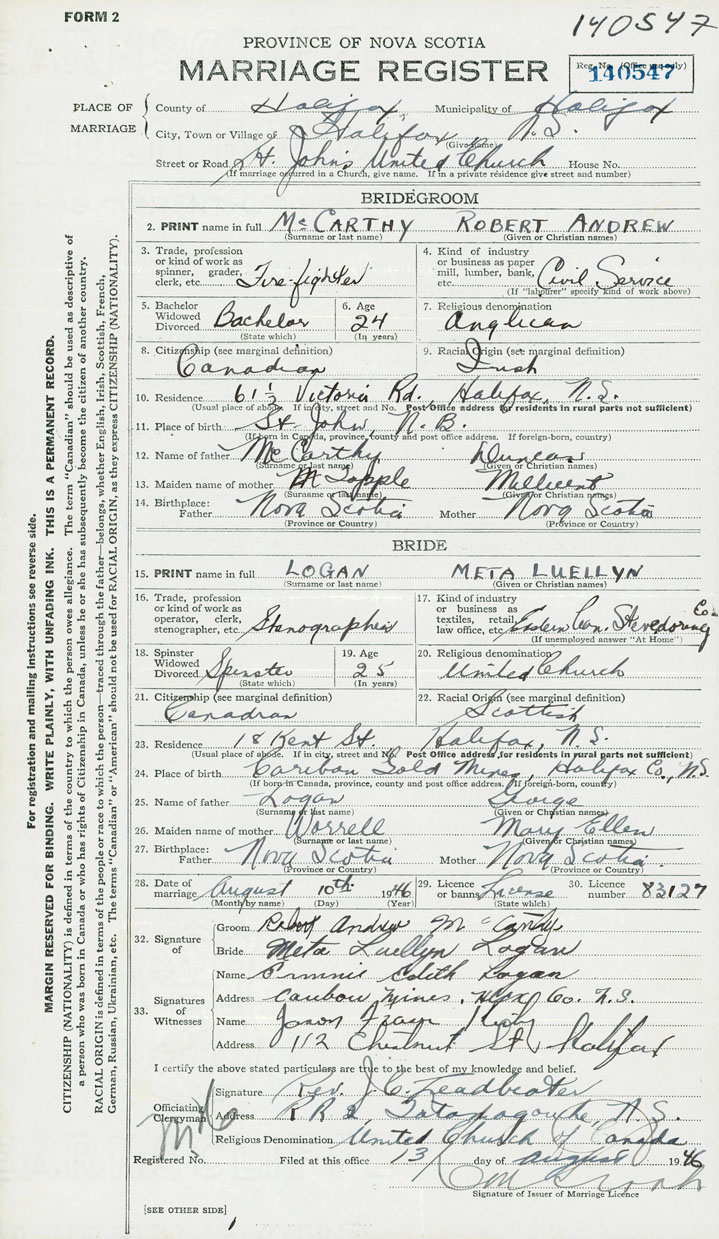 FORM 2
140547
PROVINCE OF NOVA SCOTIA
MARRIAGE REGISTER
Reg. No. (Office use only)
140547
PLACE OF MARRIAGE
County of Halifax Municipality of Halifax
City, Town or Village of Halifax, N.S.
(Give name)
Street or Road St. John's United Church House No.
(If marriage occurred in a Church, give name. If in a private residence give street and number)
BRIDEGROOM
2. PRINT name in full McCARTHY ROBERT ANDREW
(Surname or last name) (Given or Christian names)
3. Trade, profession or kind of work as spinner, grader, clerk, etc. Fire-fighter
4. Kind of industry or business as paper mill, lumber, bank, etc. Civil Service
(If "labourer" specify kind of work above)
5. Bachelor Widowed Divorced Bachelor
(State which)
6. Age 24
(In years)
7. Religious denomination Anglican
8. Citizenship (see marginal definition) Canadian
9. Racial Origin (see marginal definition) Irish
10. Residence 61½ Victoria Rd., Halifax, N.S.
(Usual place of abode. If in city, street and No. Post Office address for residents in rural parts not sufficient)
11. Place of birth St. John, N.B.
(If born in Canada, province, county and post office address. If foreign-born, country)
12. Name of father McCarthy Duncan
(Surname or last name) (Given or Christian names)
13. Maiden name of mother Topple Millicent
(Surname or last name) (Given or Christian names)
14. Birthplace: Father Nova Scotia Mother Nova Scotia
(Province or Country) (Province or Country)
BRIDE
15. PRINT name in full LOGAN META LUELLYN
(Surname or last name) (Given or Christian names)
16. Trade, profession or kind of work as operator, clerk, stenographer, etc. Stenographer
17. Kind of industry or business as textiles, retail, law office, etc. Eastern Can. Stevedoring Co.
(If unemployed answer "At Home")
18. Spinster Widowed Divorced Spinster
(State which)
19. Age 25
(In years)
20. Religious denomination United Church
21. Citizenship (see marginal definition) Canadian
22. Racial Origin (see marginal definition) Scottish
23. Residence 18 Kent St. Halifax, N.S.
(Usual place of abode. If in city, street and No. Post Office address for residents in rural parts not sufficient)
24. Place of birth Caribou Gold Mines, Halifax Co., N.S.
(If born in Canada, province, county and post office address. If foreign-born, country)
25. Name of father Logan George
(Surname or last name) (Given or Christian names)
26. Maiden name of mother Worrell Mary Ellen
(Surname or last name) (Given or Christian names)
27. Birthplace: Father Nova Scotia Mother Nova Scotia
(Province or Country) (Province or Country)
28. Date of marriage August 10th 1946
(Month by name) (Day) (Year)
29. Licence or banns License
(State which)
30. Licence number 83127
32. Signature of
Groom Robert Andrew McCarthy
Bride Meta Luellyn Logan
33. Signatures of Witnesses
Name Edith Logan
Address Caribou Mines, Hfx Co. N.S.
Name
Address 112 Chestnut St, Halifax
I certify the above stated particulars are true to the best of my knowledge and belief.
Officiating Clergyman
Signature Rev. J. C. Leadbeater
Address R R 2, Tatamagouche, N.S.
Religious Denomination United Church of Canada
Registered No. Filed at this office 13 day of August 1946
Signature of Issuer of Marriage Licence
[SEE OTHER SIDE]
For registration and mailing instructions see reverse side.
MARGIN RESERVED FOR BINDING. WRITE PLAINLY, WITH UNFADING INK. THIS IS A PERMANENT RECORD.
CITIZENSHIP (NATIONALITY) is defined in terms of the country to which the person owes allegiance. The term "Canadian" should be used as descriptive of
a person who was born in Canada or who has rights of Citizenship in Canada, unless he or she has subsequently become the citizen of another country.
RACIAL ORIGIN is defined in terms of the people or race to which the person—traced through the father—belongs, whether English, Irish, Scottish, French,
German, Russian, Ukrainian, etc. The terms "Canadian" or "American" should not be used for RACIAL ORIGIN, as they express CITIZENSHIP (NATIONALITY).